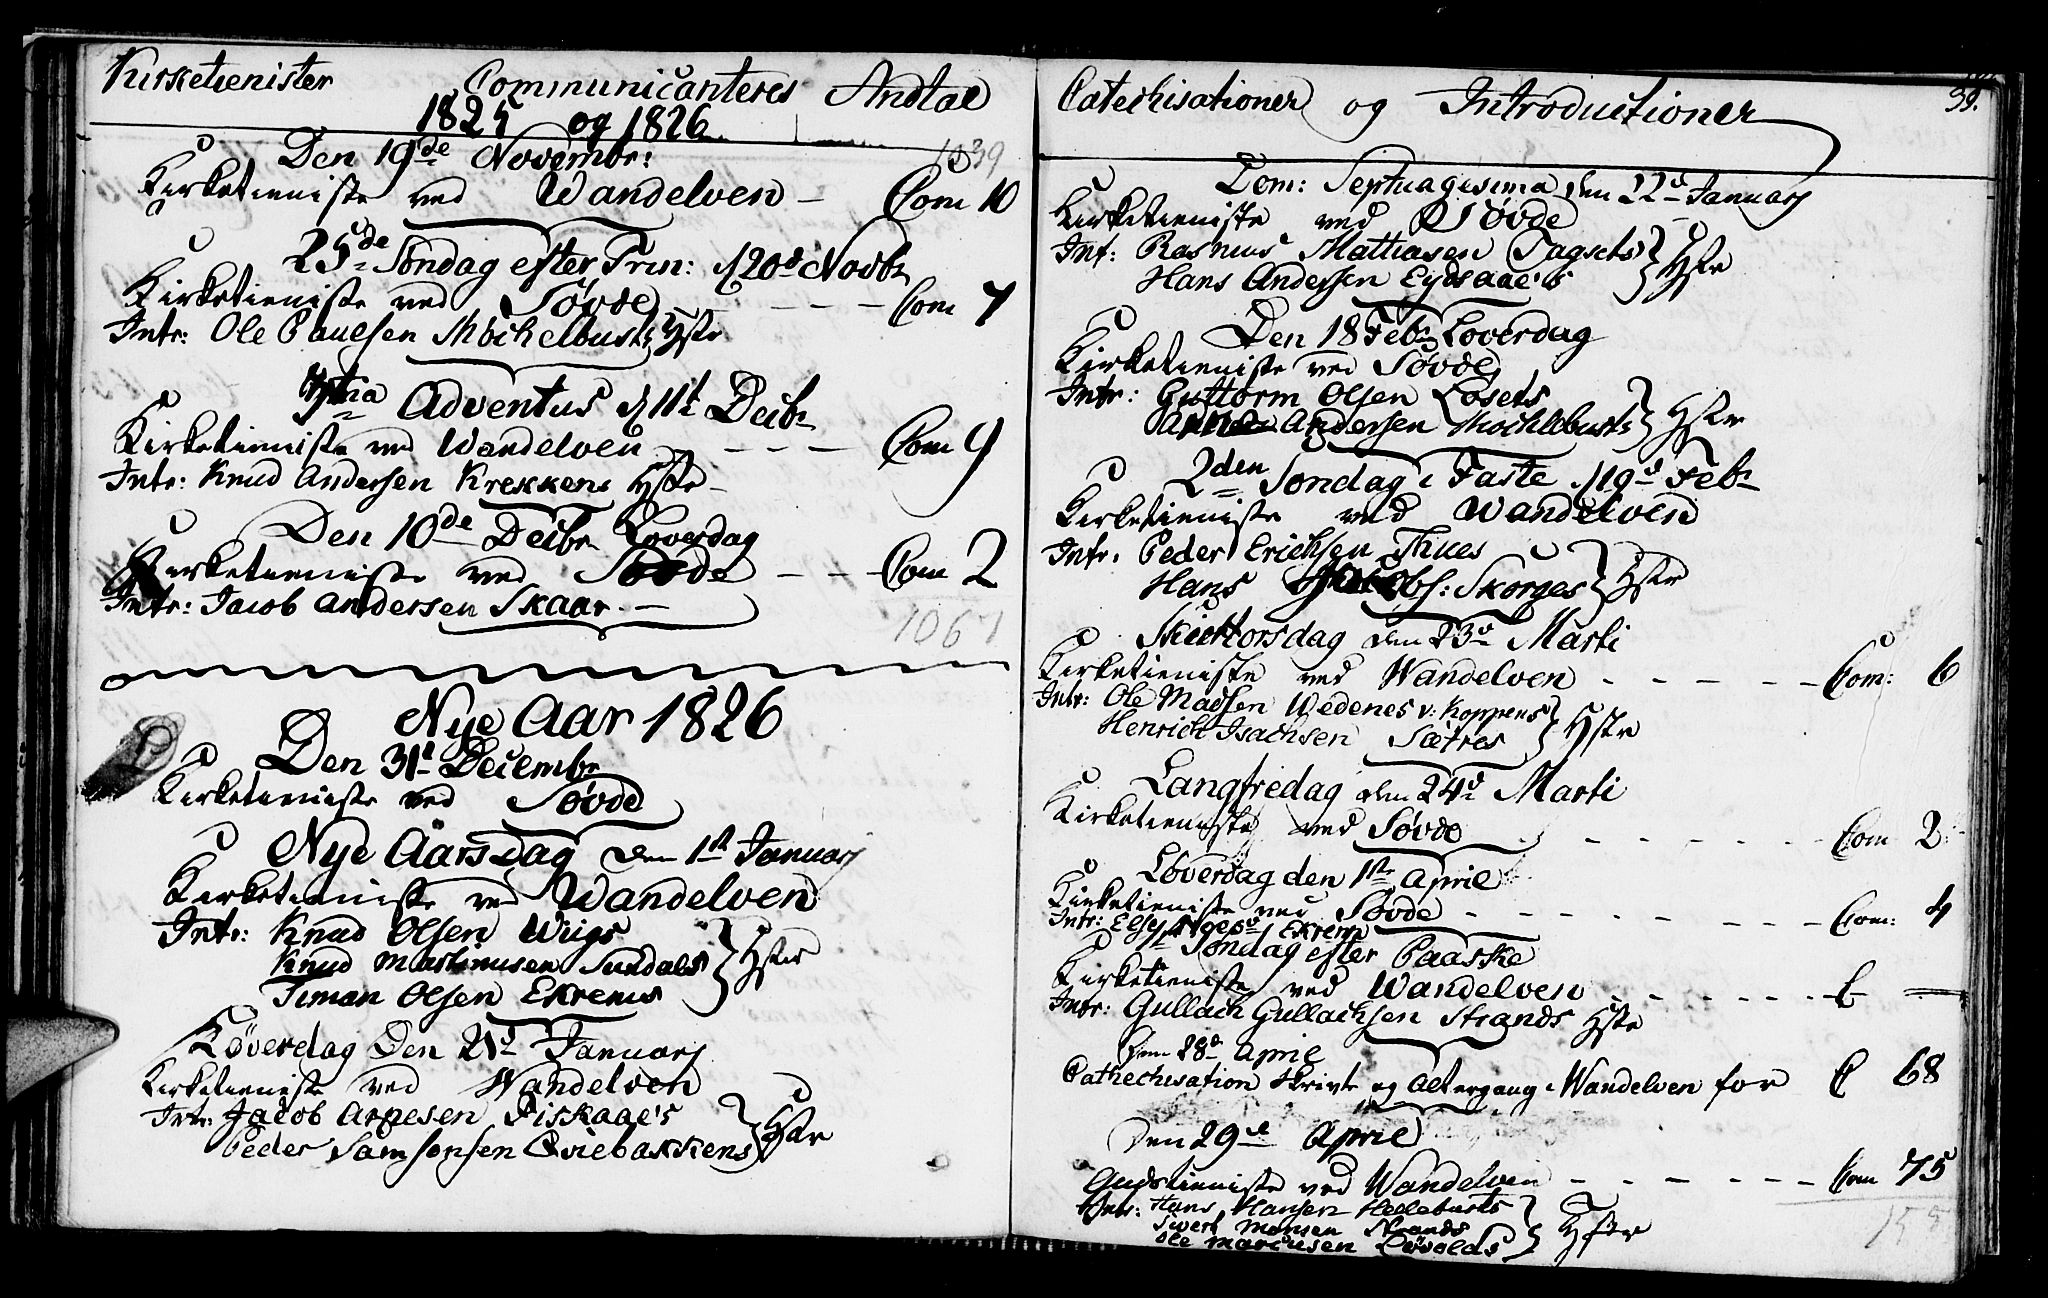 Kirketienister Communicanteres Andtal
1825 og 1826
1039
Den 19de Novembr:
Kirketieniste ved Wandelven – Com 10
25de Søndag efter Trin: d 20d Novbr
Kirketieniste ved Søvde – – – – Com 7
Intr: Ole Paulsen Mochelbusts Hstr
Adventus d 11t Decbr
Kirketieniste ved Wandelven – – – Com 9
Intr: Knud Andersen Krekkens Hstr –
Den 10de Decbr Loverdag
Kirketieniste ved Søvde – – – Com 2
Intr: Jacob Andersen Skaar. –
1067
Nye Aar 1826
Den 31d Decembr
Kirketieniste ved Søvde
Nye Aarsdag den 1st Januarj
Kirketieniste ved Wandelven
Intr: Knud Olsen Wiigs
Knud Martinusen Sundals Hstr
Timan Olsen Ekrems
Løverdag Den 21d Januarj
Kirketieniste ved Wandelven
Intr: Jacob Arnesen Fiskaae's
Peder Samsonsen Qviebakkens Hstr
Catechisationer og Introductioner
39.
Dom: Septuagesima den 22d Januarj
Kirketieniste ved Søvde
Int: Rasmus Mathiasen Hstr
Hans Andersen Eydsaae's
Den 18 Febr Loverdag
Kirketieniste ved Søvde
Intr: Guttorm Olsen Løsets
Andersen Mochlebusts Hstr
2den Søndag i Faste d 19d Febr
Kirketieniste ved Wandelven
Intr: Peder Erichsen Thues
Hans Skorges Hstr
Skiertorsdag den 23d Marti
Kirketieniste ved Wandelven – – – – – Com: 6
Intr: Ole Madsen Wedenes v: Koppens
Henrich Isachsen Sætres Hstr
Langfredag den 24d Marti
Kirketieniste ved Søvde – – – – – Com 2
Løverdag den 1ste April
Kirketieniste ved Søvde – – – – – Com: 4
Intr: Ekrem
Søndag efter Paaske
Kirketieniste ved Wandelven – – – – – C –
Intr: Gullach Gullachsen Strands Hstr
Den 28d April
Cathechisation Skrivte og Altergang i Wandelven for C 68
Den 29de April
Gudstieniste ved Wandelven – – – – – Com 75
Intr: Hans Hansen Hellebusts
Sivert Monsen Strands Hstr
Ole Marcusen